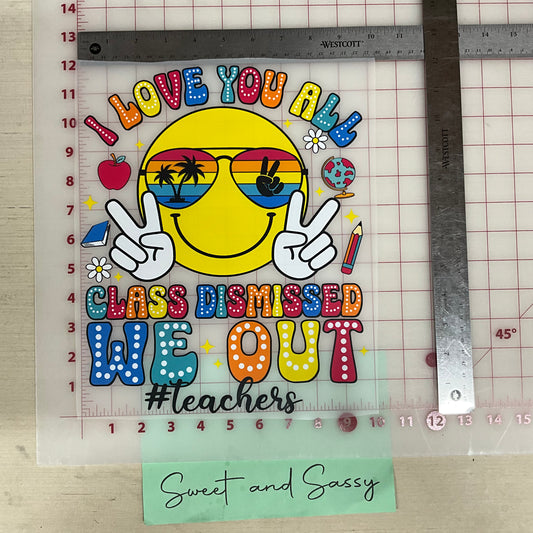 I LOVE YOU ALL
CLASS DISMISSED
WE OUT
#teachers
Sweet and Sassy
WESTCOTT
WESTCOTT
45°
14
13
12
11
10
9
8
7
6
5
4
3
2
1
1 2 3 4 5 6 7 8 9 10 11 12 13 14 15